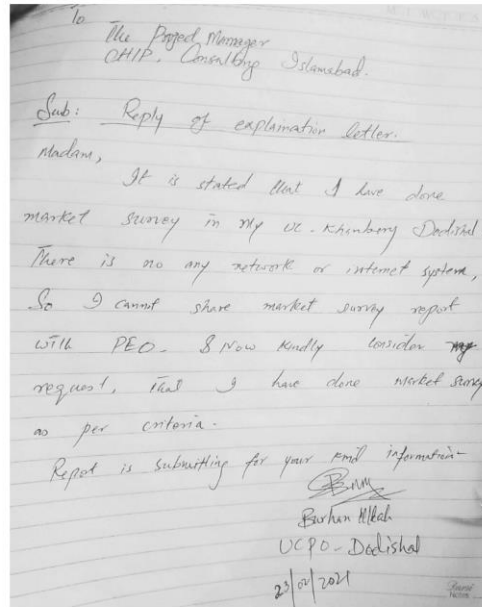 To
The Project Manager
CHIP, Consulting Islamabad.
Sub: Reply of explaination letter.
Madam,
It is stated that I have done
market survey in my UC-Khanbery Dodishal
There is no any network or internet system,
So I cannot share market survey report
with PEO. & Now kindly consider my
request, that I have done market survey
as per criteria.
Report is submitting for your kind information-
Burhan
UCPO-Dodishal
23/02/2021